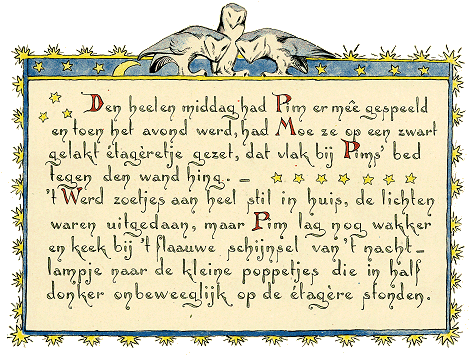 Den heelen middag had Pim er mêe gespeeld
en toen het avond werd, had Moe ze op een zwart
gelakt étagèretje gezet, dat vlak bij Pims' bed
tegen den wand hing. –
't Werd zoetjes aan heel stil in huis, de lichten
waren uitgedaan, maar Pim lag nog wakker
en keek bij 't flaauwe schijnsel van 't nacht-
lampje naar de kleine poppetjes die in half
donker onbeweeglijk op de étagère stonden.